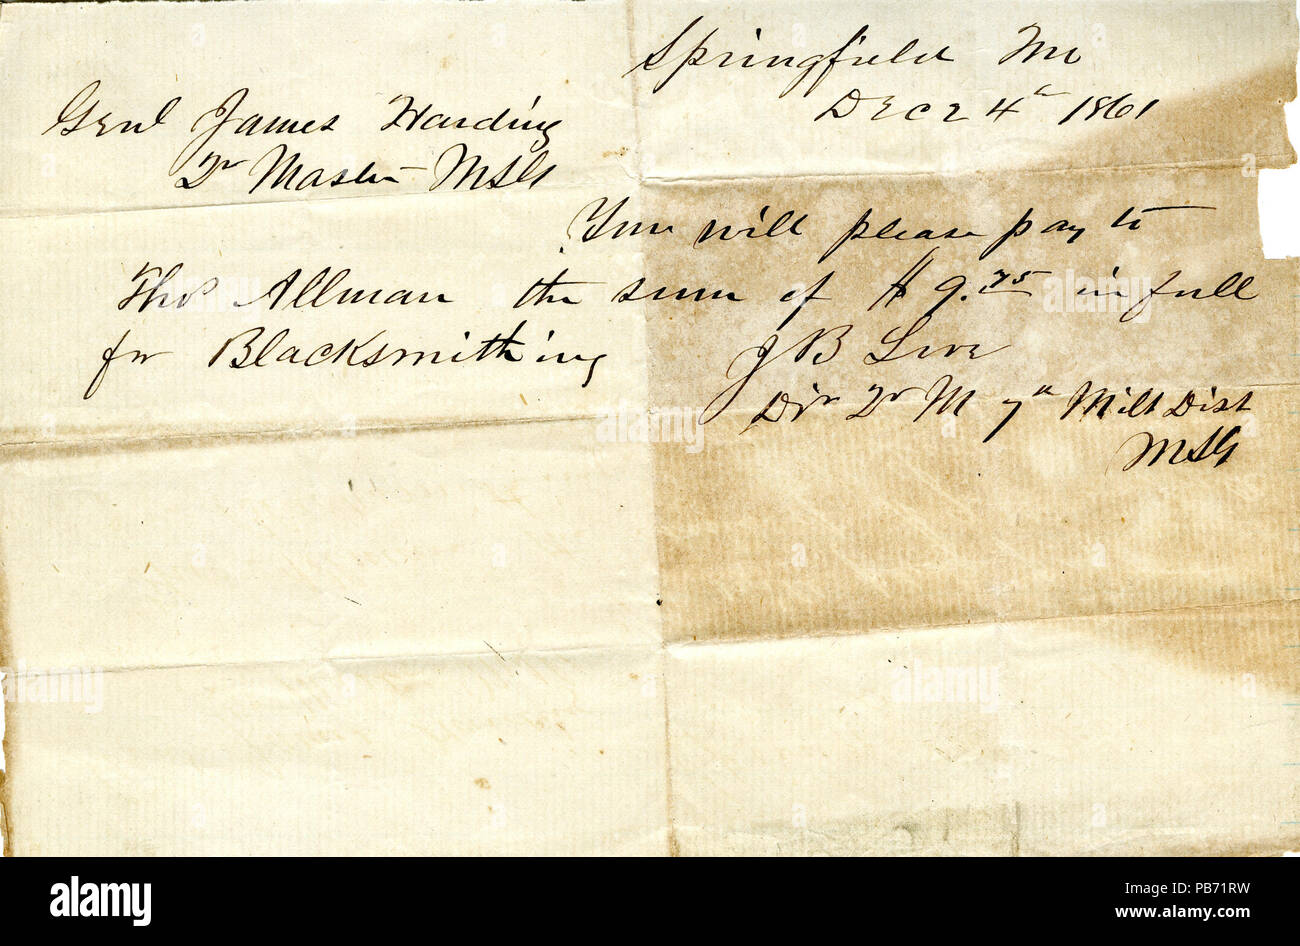 Springfield Mo
Dec 24th 1861
Genl James Harding
Qr Master MSG
You will please pay to
Thos Allman the sum of $9.75 in full
for Blacksmithing
J B Love
Divn Qr M 7th Milt Dist
MSG
alamy
alamy
alamy
alamy
Image ID: PB71RW
www.alamy.com